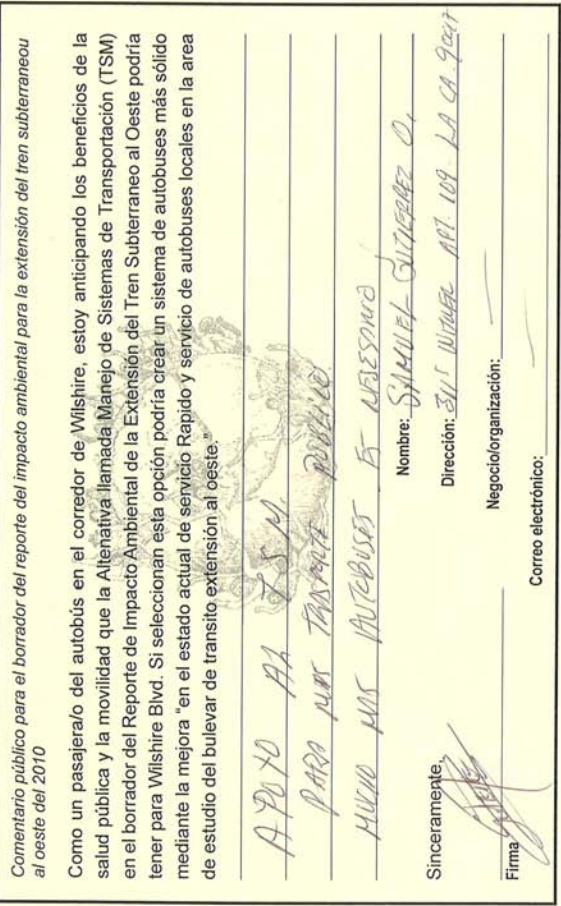 Comentario público para el borrador del reporte del impacto ambiental para la extensión del tren subterraneou
al oeste del 2010
Como un pasajera/o del autobús en el corredor de Wilshire, estoy anticipando los beneficios de la
salud pública y la movilidad que la Altenativa llamada Manejo de Sistemas de Transportación (TSM)
en el borrador del Reporte de Impacto Ambiental de la Extensión del Tren Subterraneo al Oeste podría
tener para Wilshire Blvd. Si seleccionan esta opción podría crear un sistema de autobuses más sólido
mediante la mejora "en el estado actual de servicio Rapido y servicio de autobuses locales en la area
de estudio del bulevar de transito extensión al oeste."
APOYO AL T.S.M.
PARA MAS PUBLICO.
MUCHO MAS AUTOBUSES. ES NESESARIO
Sinceramente,
Nombre: SAMUEL GUTIERREZ O.
Dirección: APT. 109 LA CA.
Firma
Negocio/organización:
Correo electrónico: